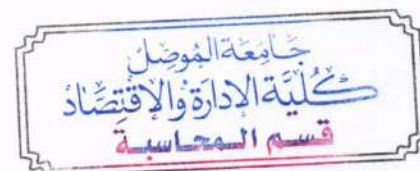 جَامِعَة المُوصِل
كُلِيَّة الإدَارَة وَالاقْتِصَاد
قسم المحاسبة